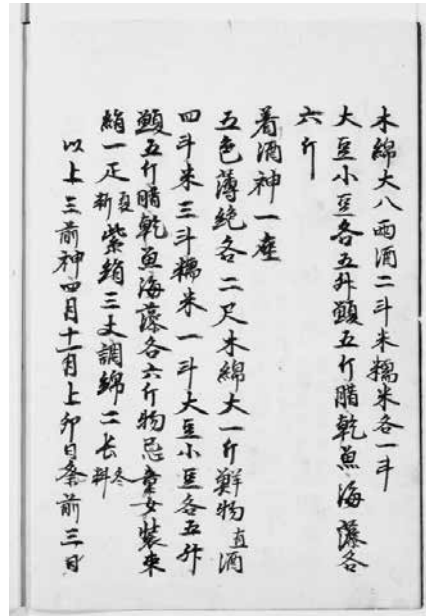 木綿大八両酒二斗米糯米各一斗
大豆小豆各五升鰒五斤腊乾魚海藻各
六斤
着酒神一座
五色薄絁各二尺木綿大一斤鮮物直酒
四斗米三斗糯米一斗大豆小豆各五升
鰒五斤腊乾魚海藻各六斤物忌童女装束
絹一疋夏料紫絹三丈調綿二屯冬料
以上三前神四月十一月上卯日祭前三日